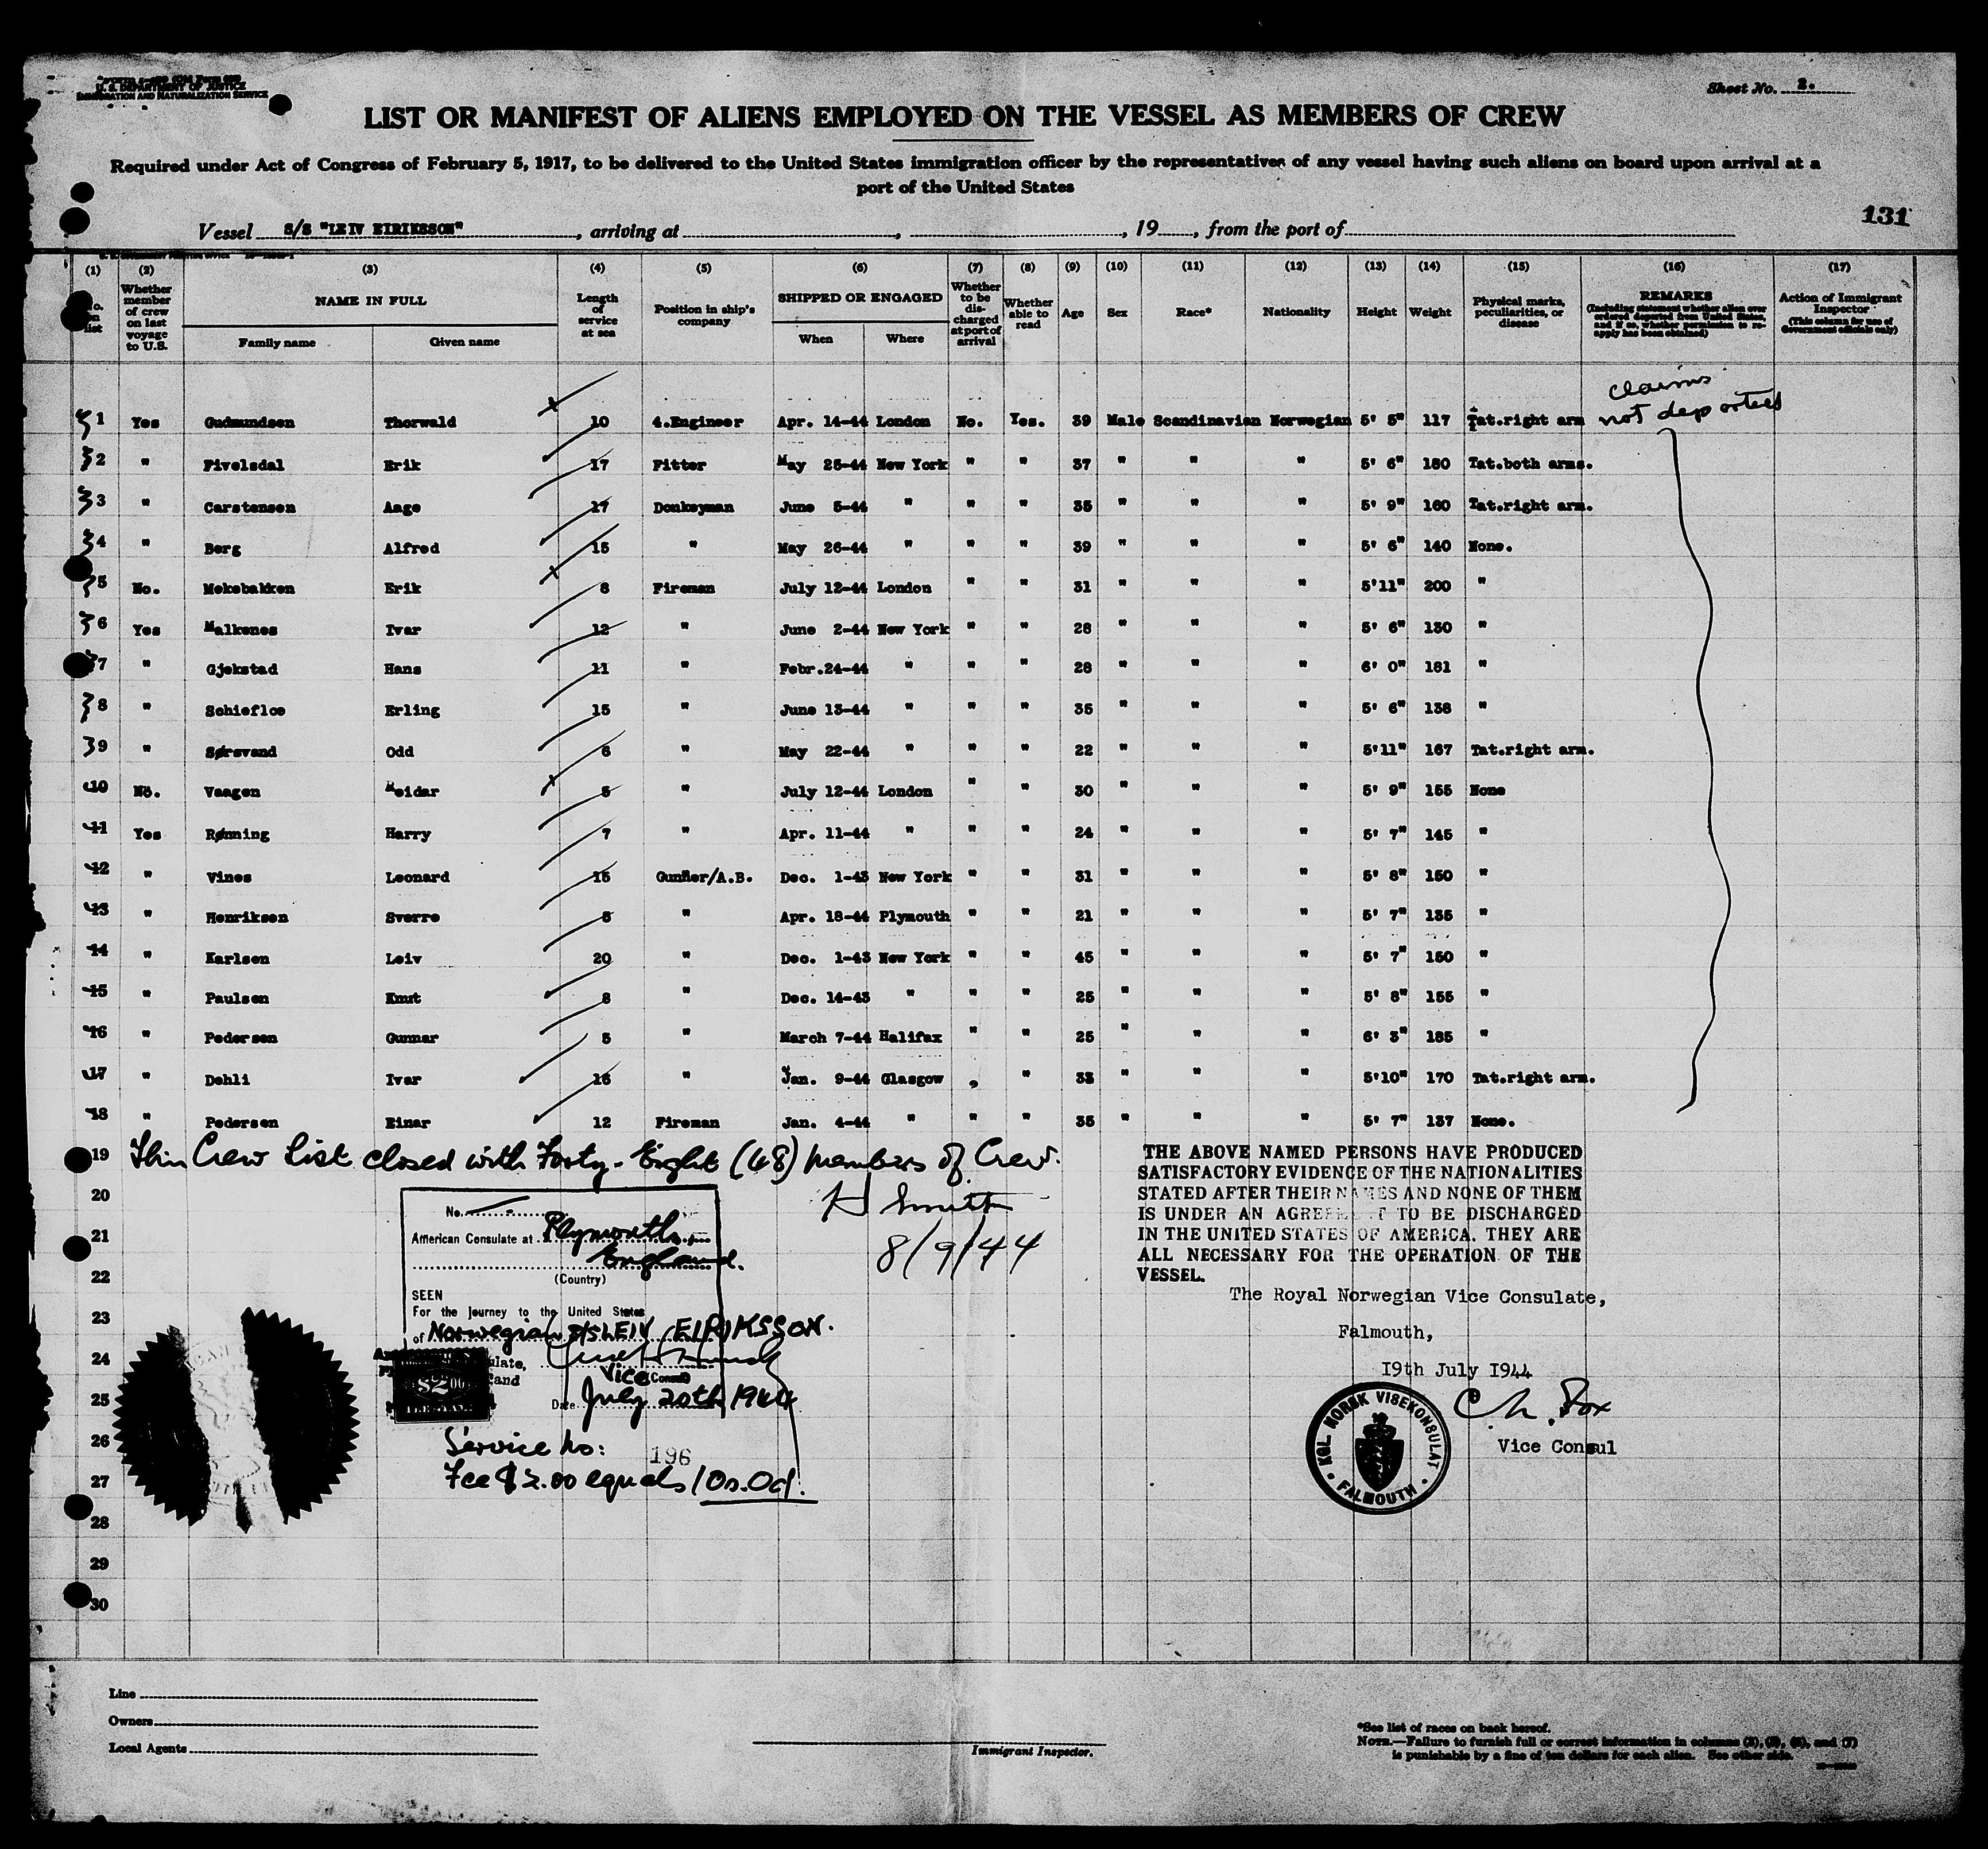 U. S. DEPARTMENT OF JUSTICE
IMMIGRATION AND NATURALIZATION SERVICE
Sheet No. 2.
LIST OR MANIFEST OF ALIENS EMPLOYED ON THE VESSEL AS MEMBERS OF CREW
Required under Act of Congress of February 5, 1917, to be delivered to the United States immigration officer by the representatives of any vessel having such aliens on board upon arrival at a
port of the United States
131
Vessel S/S "LEIV EIRIKSSON", arriving at , , 19 , from the port of
(1) (2) (3) (4) (5) (6) (7) (8) (9) (10) (11) (12) (13) (14) (15) (16) (17)
No. on list
Whether member of crew on last voyage to U.S.
NAME IN FULL
Family name Given name
Length of service at sea
Position in ship's company
SHIPPED OR ENGAGED
When Where
Whether to be discharged at port of arrival
Whether able to read
Age Sex Race* Nationality Height Weight
Physical marks, peculiarities, or disease
REMARKS
(Including statement whether alien ever ordered deported from United States, and if so, whether permission to reapply has been obtained)
Action of Immigrant Inspector
(This column for use of Government officials only)
claims
not deported
31 Yes Gudmundsen Thorwald 10 4.Engineer Apr. 14-44 London No. Yes. 39 Male Scandinavian Norwegian 5' 5" 117 Tat.right arm
32 " Fivelsdal Erik 17 Fitter May 25-44 New York " " 37 " " " 5' 6" 180 Tat.both arms.
33 " Carstensen Aage 17 Donkeyman June 5-44 " " " 35 " " " 5' 9" 160 Tat.right arm.
34 " Berg Alfred 15 " May 26-44 " " " 39 " " " 5' 6" 140 None.
35 No. Mekebakken Erik 6 Fireman July 12-44 London " " 31 " " " 5'11" 200 "
36 Yes Malkenes Ivar 12 " June 2-44 New York " " 28 " " " 5' 6" 130 "
37 " Gjekstad Hans 11 " Febr.24-44 " " " 28 " " " 6' 0" 181 "
38 " Schiefloe Erling 15 " June 13-44 " " " 35 " " " 5' 6" 138 "
39 " Sørsvand Odd 6 " May 22-44 " " " 22 " " " 5'11" 167 Tat.right arm.
40 No. Vaagen Reidar 5 " July 12-44 London " " 30 " " " 5' 9" 155 None
41 Yes Rønning Harry 7 " Apr. 11-44 " " " 24 " " " 5' 7" 145 "
42 " Vines Leonard 15 Gunner/A.B. Dec. 1-43 New York " " 31 " " " 5' 8" 150 "
43 " Henriksen Sverre 5 " Apr. 18-44 Plymouth " " 21 " " " 5' 7" 135 "
44 " Karlsen Leiv 20 " Dec. 1-43 New York " " 45 " " " 5' 7" 150 "
45 " Paulsen Knut 8 " Dec. 14-43 " " " 25 " " " 5' 8" 155 "
46 " Pedersen Gunnar 5 " March 7-44 Halifax " " 25 " " " 6' 3" 185 "
47 " Dehli Ivar 16 " Jan. 9-44 Glasgow , " 33 " " " 5'10" 170 Tat.right arm.
48 " Pedersen Einar 12 Fireman Jan. 4-44 " " " 35 " " " 5' 7" 137 None.
19 This Crew List closed with Forty-Eight (48) Members of Crew.
H Smith
8/9/44
THE ABOVE NAMED PERSONS HAVE PRODUCED
SATISFACTORY EVIDENCE OF THE NATIONALITIES
STATED AFTER THEIR NAMES AND NONE OF THEM
IS UNDER AN AGREEMENT TO BE DISCHARGED
IN THE UNITED STATES OF AMERICA. THEY ARE
ALL NECESSARY FOR THE OPERATION OF THE
VESSEL.
The Royal Norwegian Vice Consulate,
Falmouth,
19th July 1944
C N. Fox
Vice Consul
KGL. NORSK VISEKONSULAT
FALMOUTH
20
21
22
23
24
25
26
27
28
29
30
No.
American Consulate at Plymouth,
England.
(Country)
SEEN
For the journey to the United States
of Norwegian S/S LEIV EIRIKSSON.
Vice Consul
$2.00
Date July 20th 1944
Service No: 196
Fee $2.00 equals 10s.0d.
Line
Owners
Local Agents
Immigrant Inspector.
*See list of races on back hereof.
NOTE.—Failure to furnish full or correct information in columns (3), (5), (6), and (7)
is punishable by a fine of ten dollars for each alien. See other side.